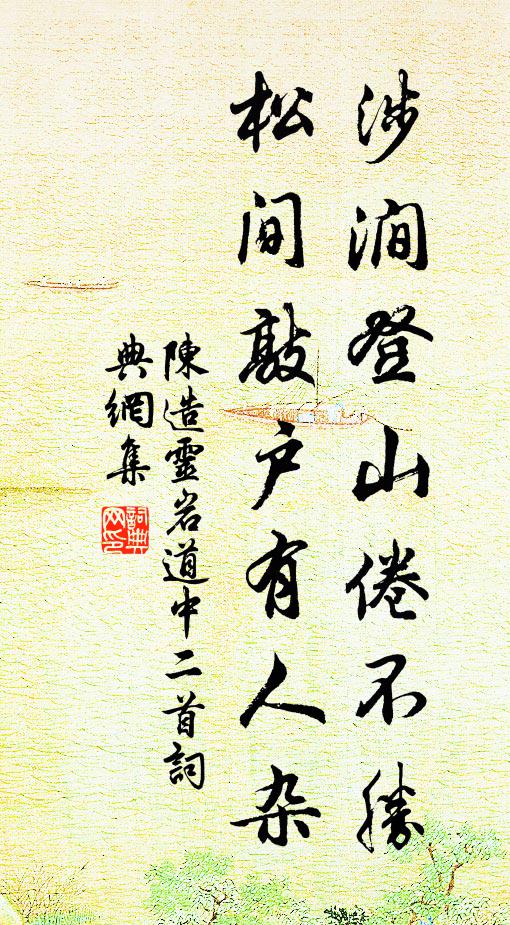 涉澗登山倦不勝
松間敲户有人杂
陳造靈岩道中二首詞
典網集
詞典网印